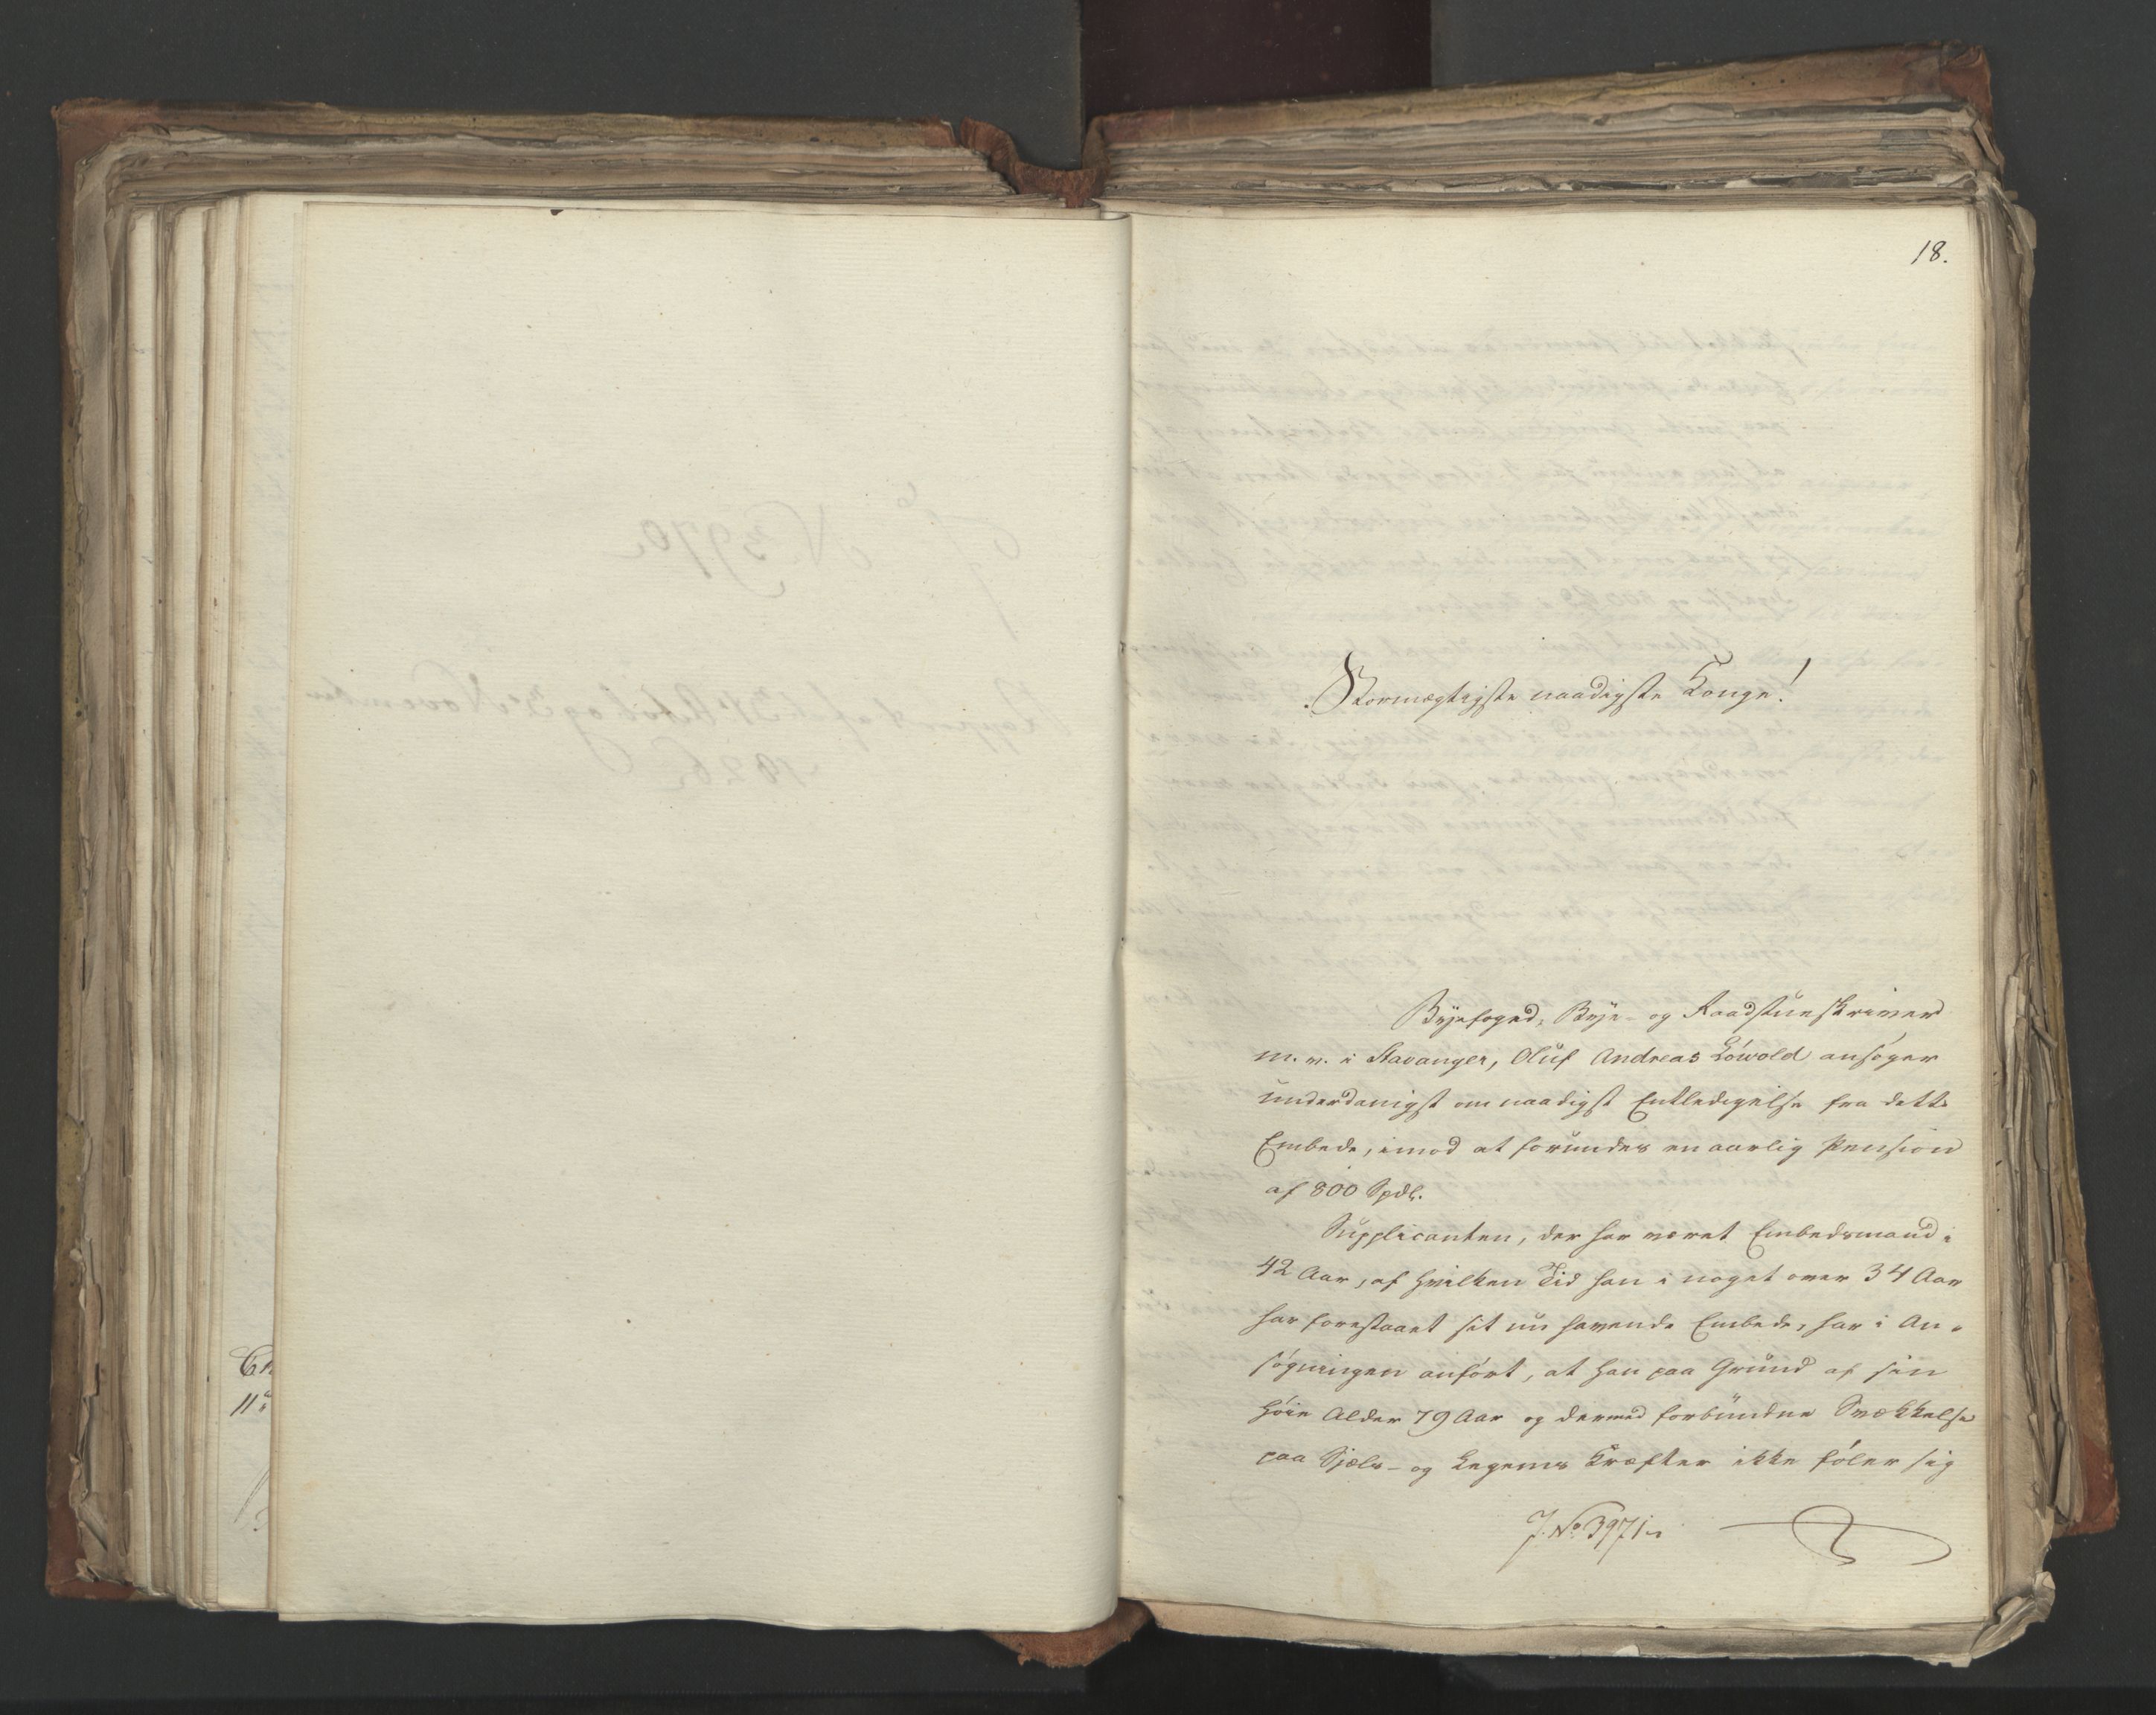 18.
Stormægtigste naadigste Konge!
Byefoged, Bye- og Raadstueskriver
m. v. i Stavanger, Oluf Andreas Löwold ansøger
underdanigst om naadigst Entledigelse fra dette
Embede, imod at forundes en aarlig Pension
af 800 Spdlr.
Supplicanten, der har været Embedsmand i
42 Aar, af hvilken Tid han i noget over 34 Aar
har forestaaet sit nu havende Embede, har i An-
søgningen anført, at han paa Grund af sin
høie Alder 79 Aar og dermed forbundne Svækkelse
paa Sjels- og Legems Kræfter ikke føler sig
J. No 3971.